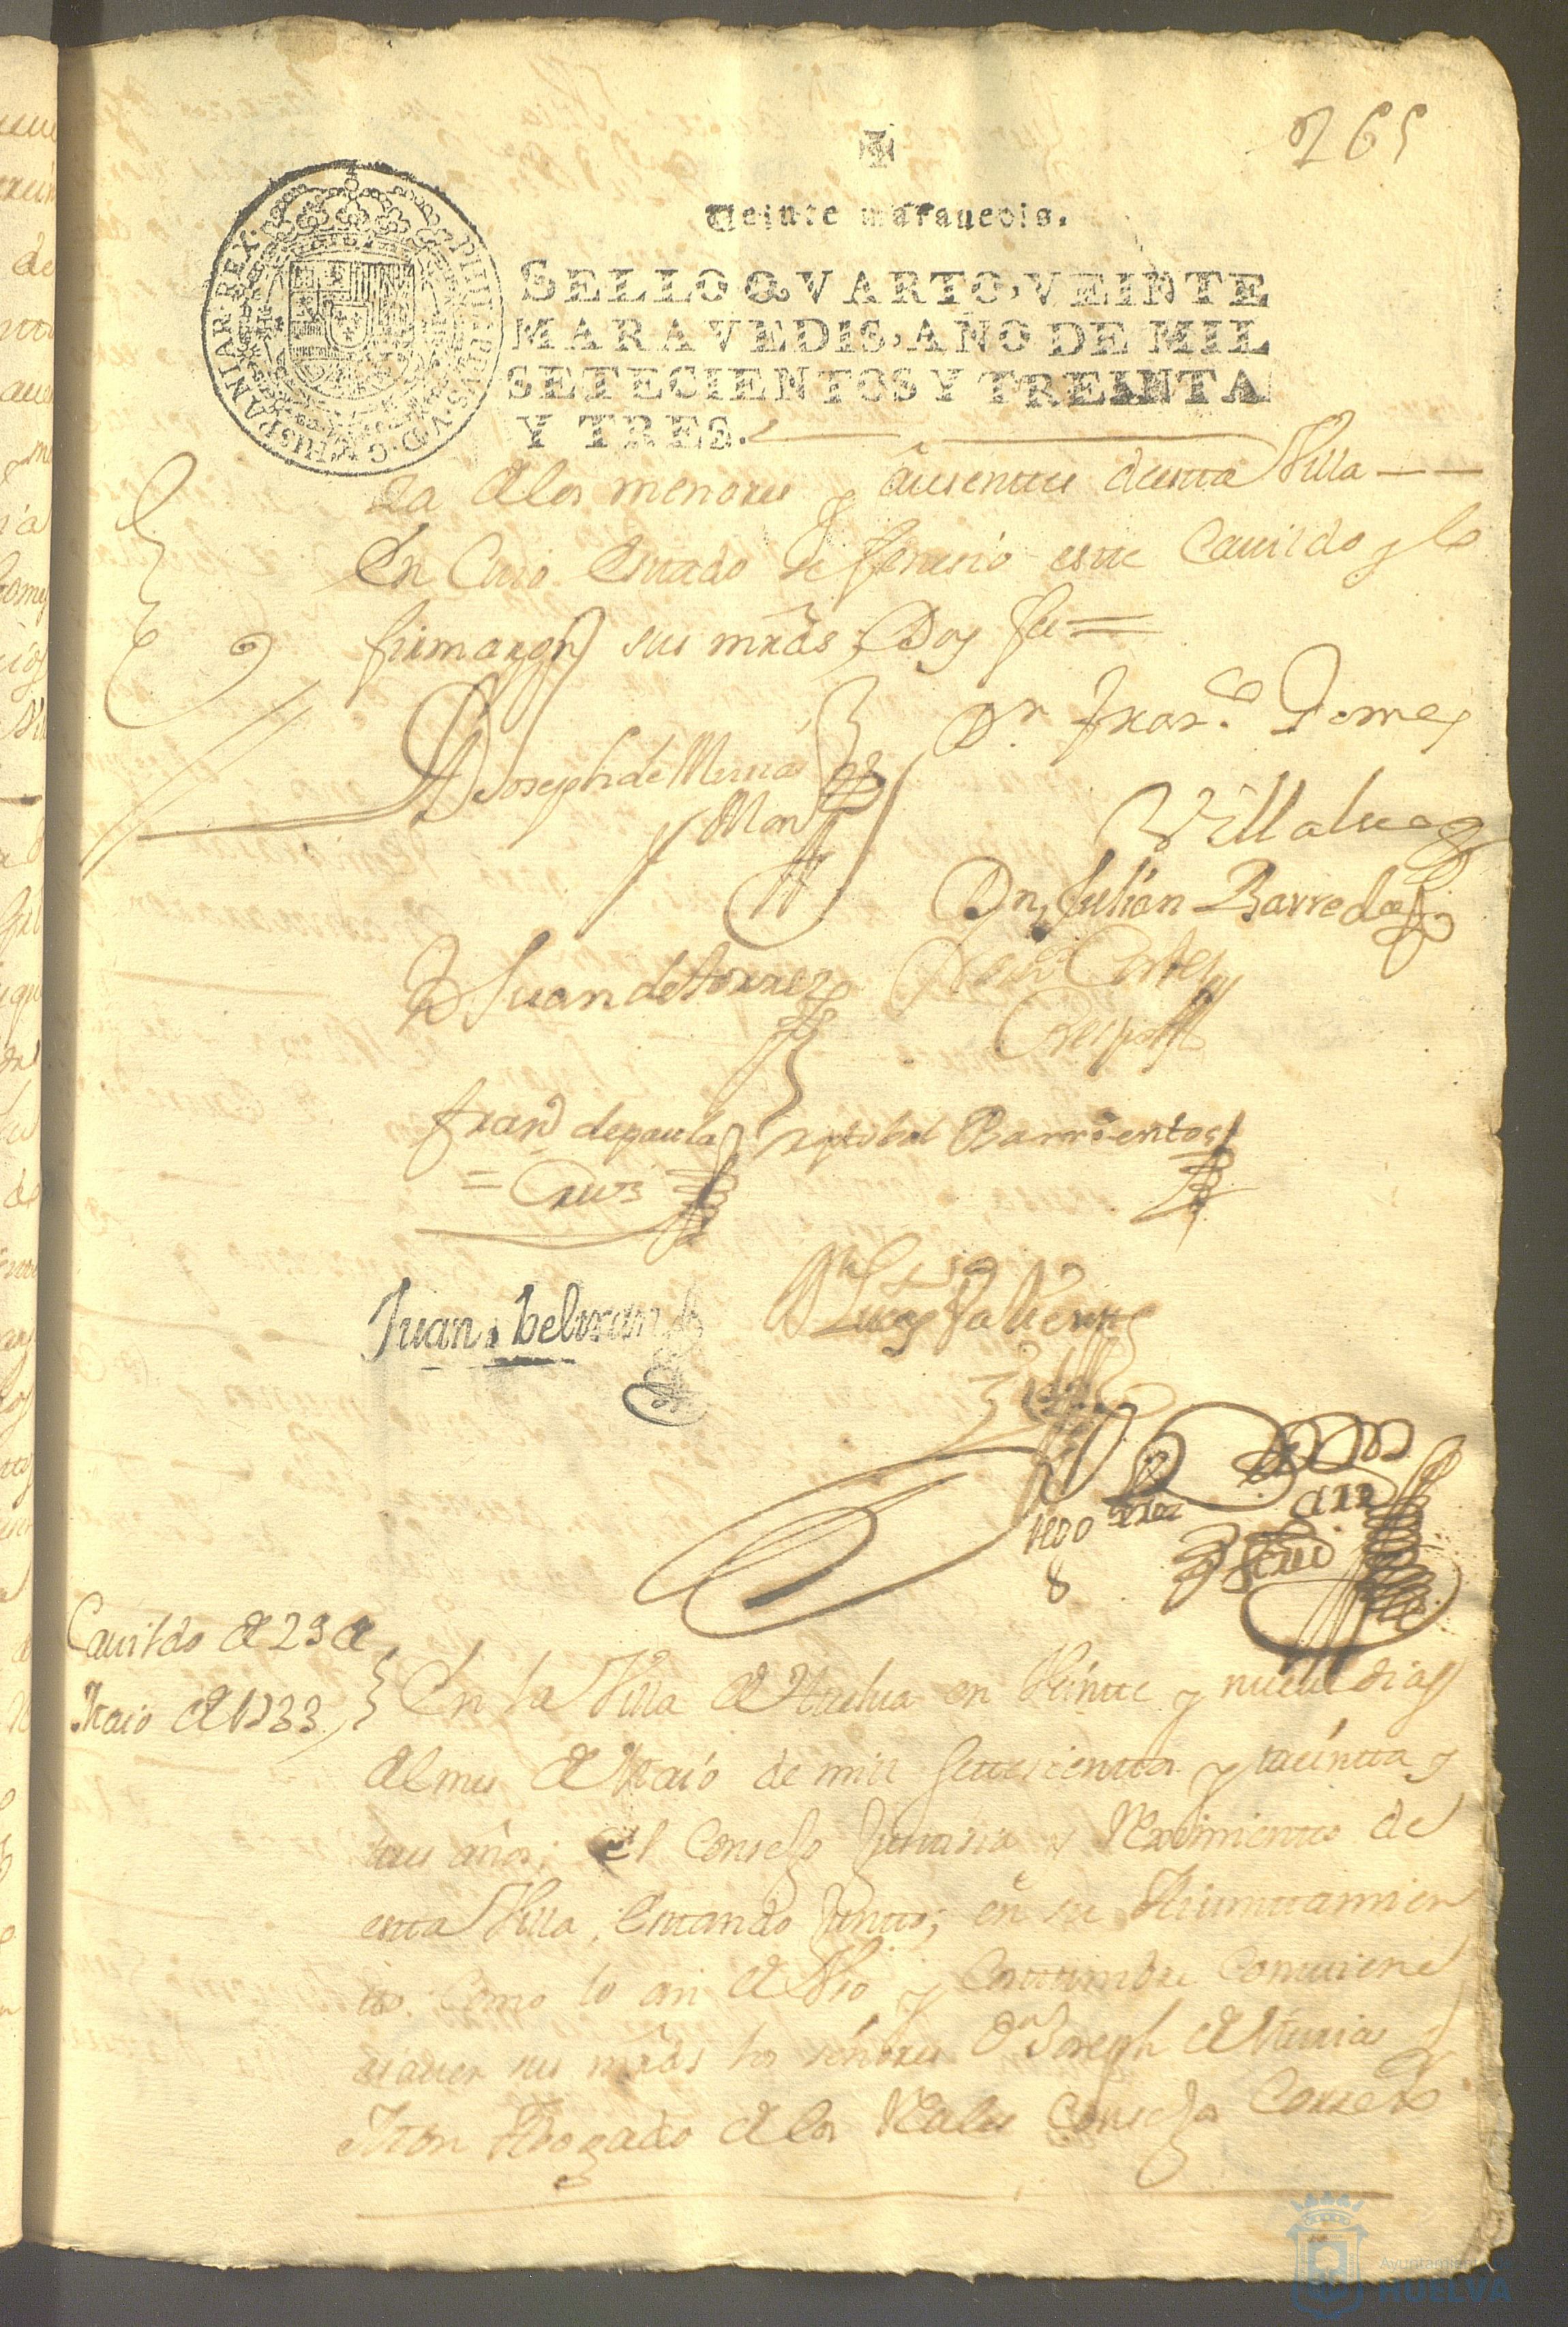 265
Veinte marauedis.
SELLO QVARTO, VEINTE
MARAVEDIS, AÑO DE MIL
SETECIENTOS Y TREINTA
Y TRES.
PHILIPPVS·V·D·G· HISPANIAR·REX·
da a los menores y ausentes de esta Villa
En Cuio estado se feneсió este Cauildo y lo
firmaron sus mrds Doy fee =
Dn Joseph de Murias
y Mon
Dr Franco Gomez
Villalua
Dn Julián Barreda
D Juan de torrez
Cortes
Crespo
Franco de paula
= Cruz
xptobal Barrientos
Juan beltran
Lucas Valiente
Cauildo de 29 de
Maio de 1733
En la Villa de Huelua en Veinte y nueue dias
del mes de Maio de mill settecientos y treinta y
tres años; el Consejo Justisia y Reximiento de
esta Villa, Estando Juntos, en su Aiuntamien
to. Como lo an de Vso y Costumbre Conuiene
asauer sus mrds los señores Dn Joseph de Murias y
Mon Abogado de los Reales Consejos Correxor
Ayuntamiento de
HUELVA